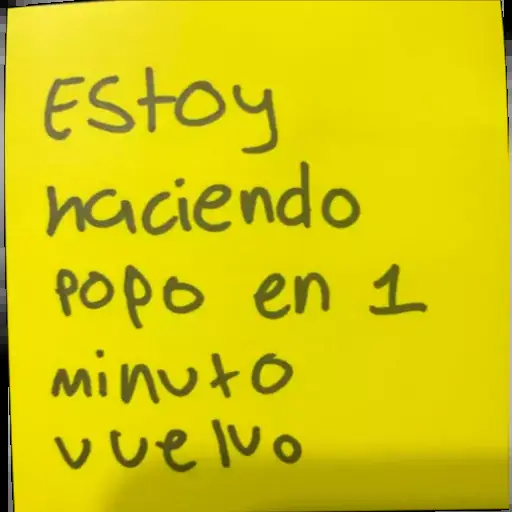 Estoy
haciendo
popo en 1
minuto
vuelvo